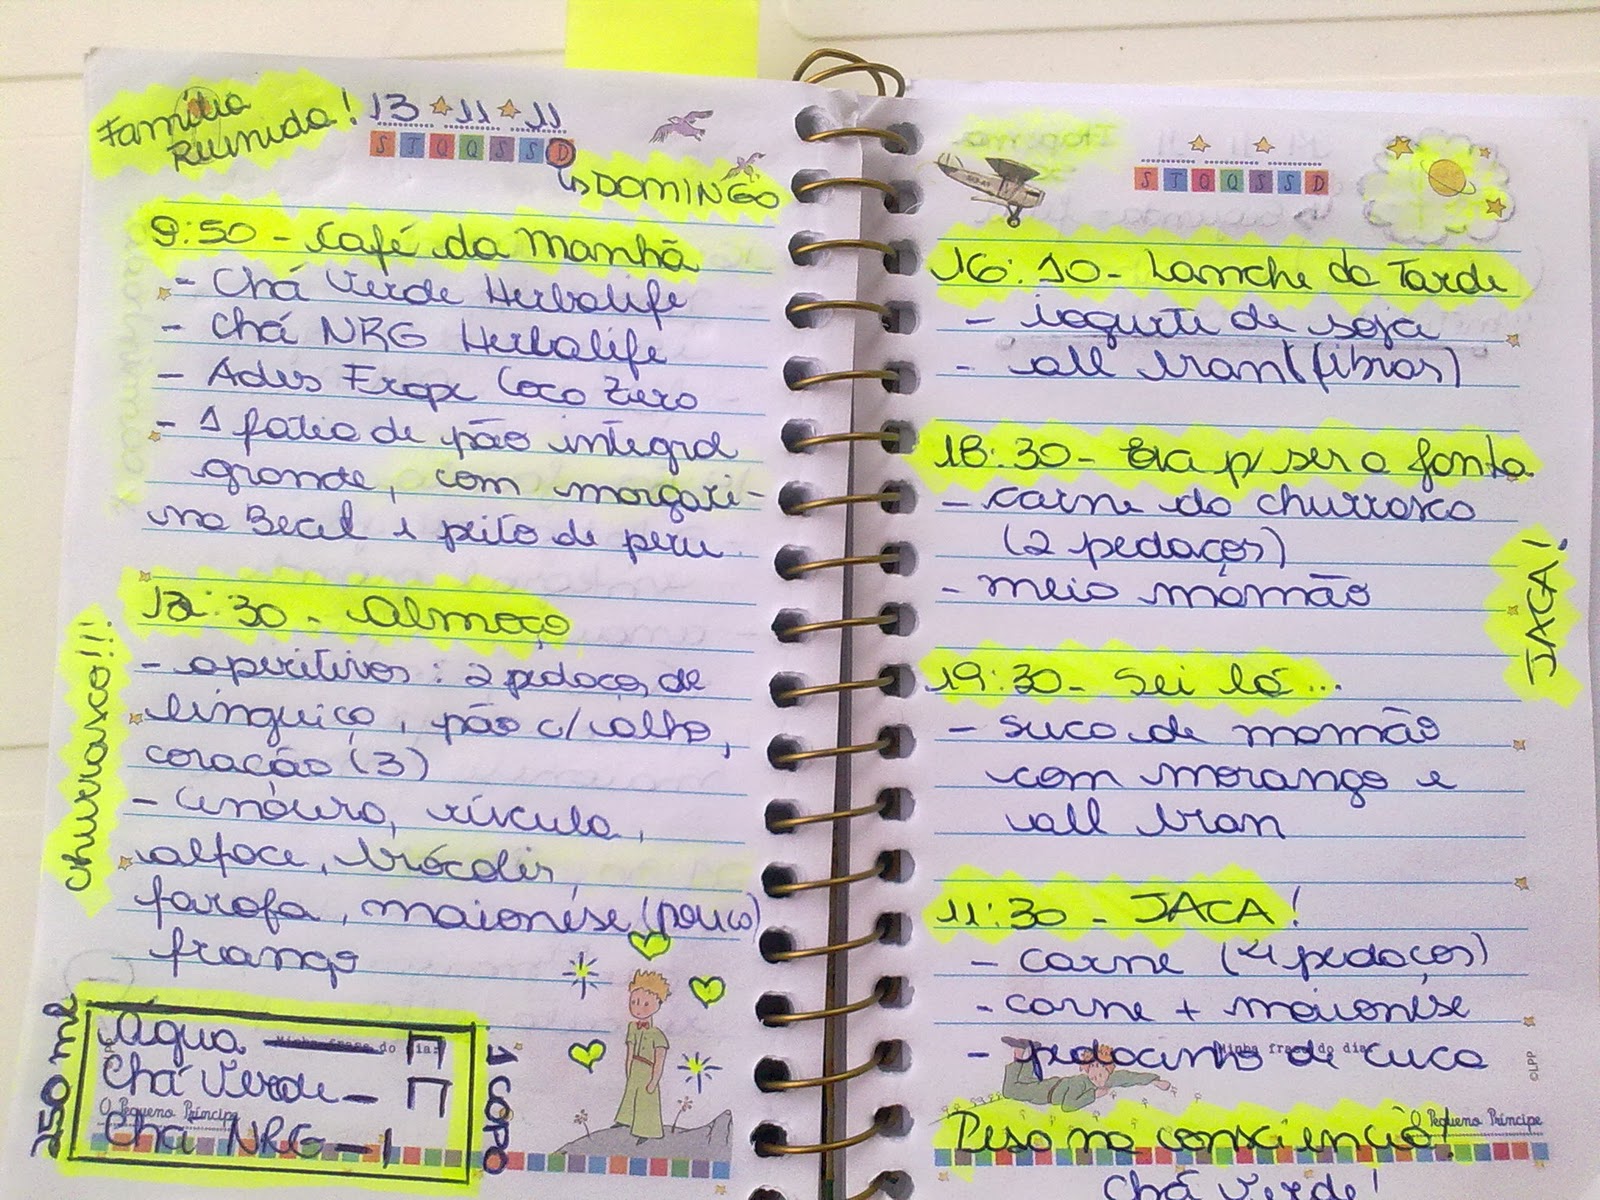 Família
Reunida!
13 11 11
S T Q Q S S D
↳ DOMINGO
9:50 - Café da Manhã
- Chá Verde Herbalife
- Chá NRG Herbalife
- Ades Frape Coco Zero
- 1 fatia de pão integral
grande, com margari-
na Becel e peito de peru
churrasco!!!
12:30 - Almoço
- aperitivos: 2 pedaços de
linguiça, pão c/ alho,
coração (3)
- cenoura, rúcula,
alface, brócolis,
farofa, maionese (pouco)
frango
250 ml
Água -
Chá Verde -
Chá NRG - 1
1 COPO
Minha frase do dia:
O Pequeno Príncipe
S T Q Q S S D
16:10 - Lanche da Tarde
- iogurte de soja
- all bran (fibras)
18:30 - Era p/ ser a janta
- carne do churrasco
(2 pedaços)
- meio mamão
JACA!
19:30 - Sei lá...
- suco de mamão
com morango e
all bran
11:30 - JACA!
- carne (4 pedaços)
- carne + maionese
- pedacinho de cuca
Minha frase do dia
©LPP
O Pequeno Príncipe
Peso na consciência!
Chá Verde!